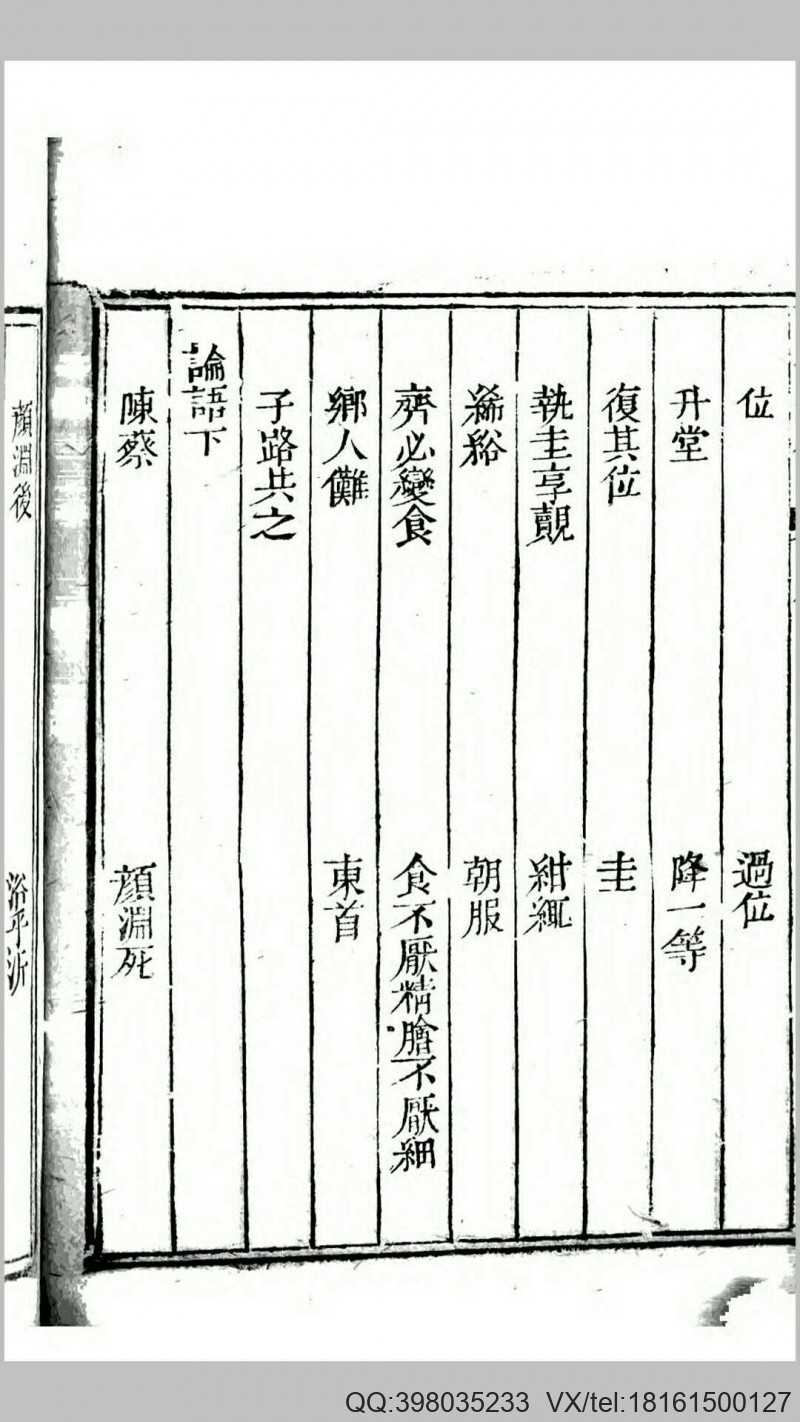 位 過位
升堂 降一等
復其位 圭
執圭享覿 紺緅
絺綌 朝服
齊必變食 食不厭精膾不厭細
鄉人儺 東首
子路共之
論語下
陳蔡 顏淵死
顏淵後 浴乎沂
QQ:398035233 VX/tel:18161500127